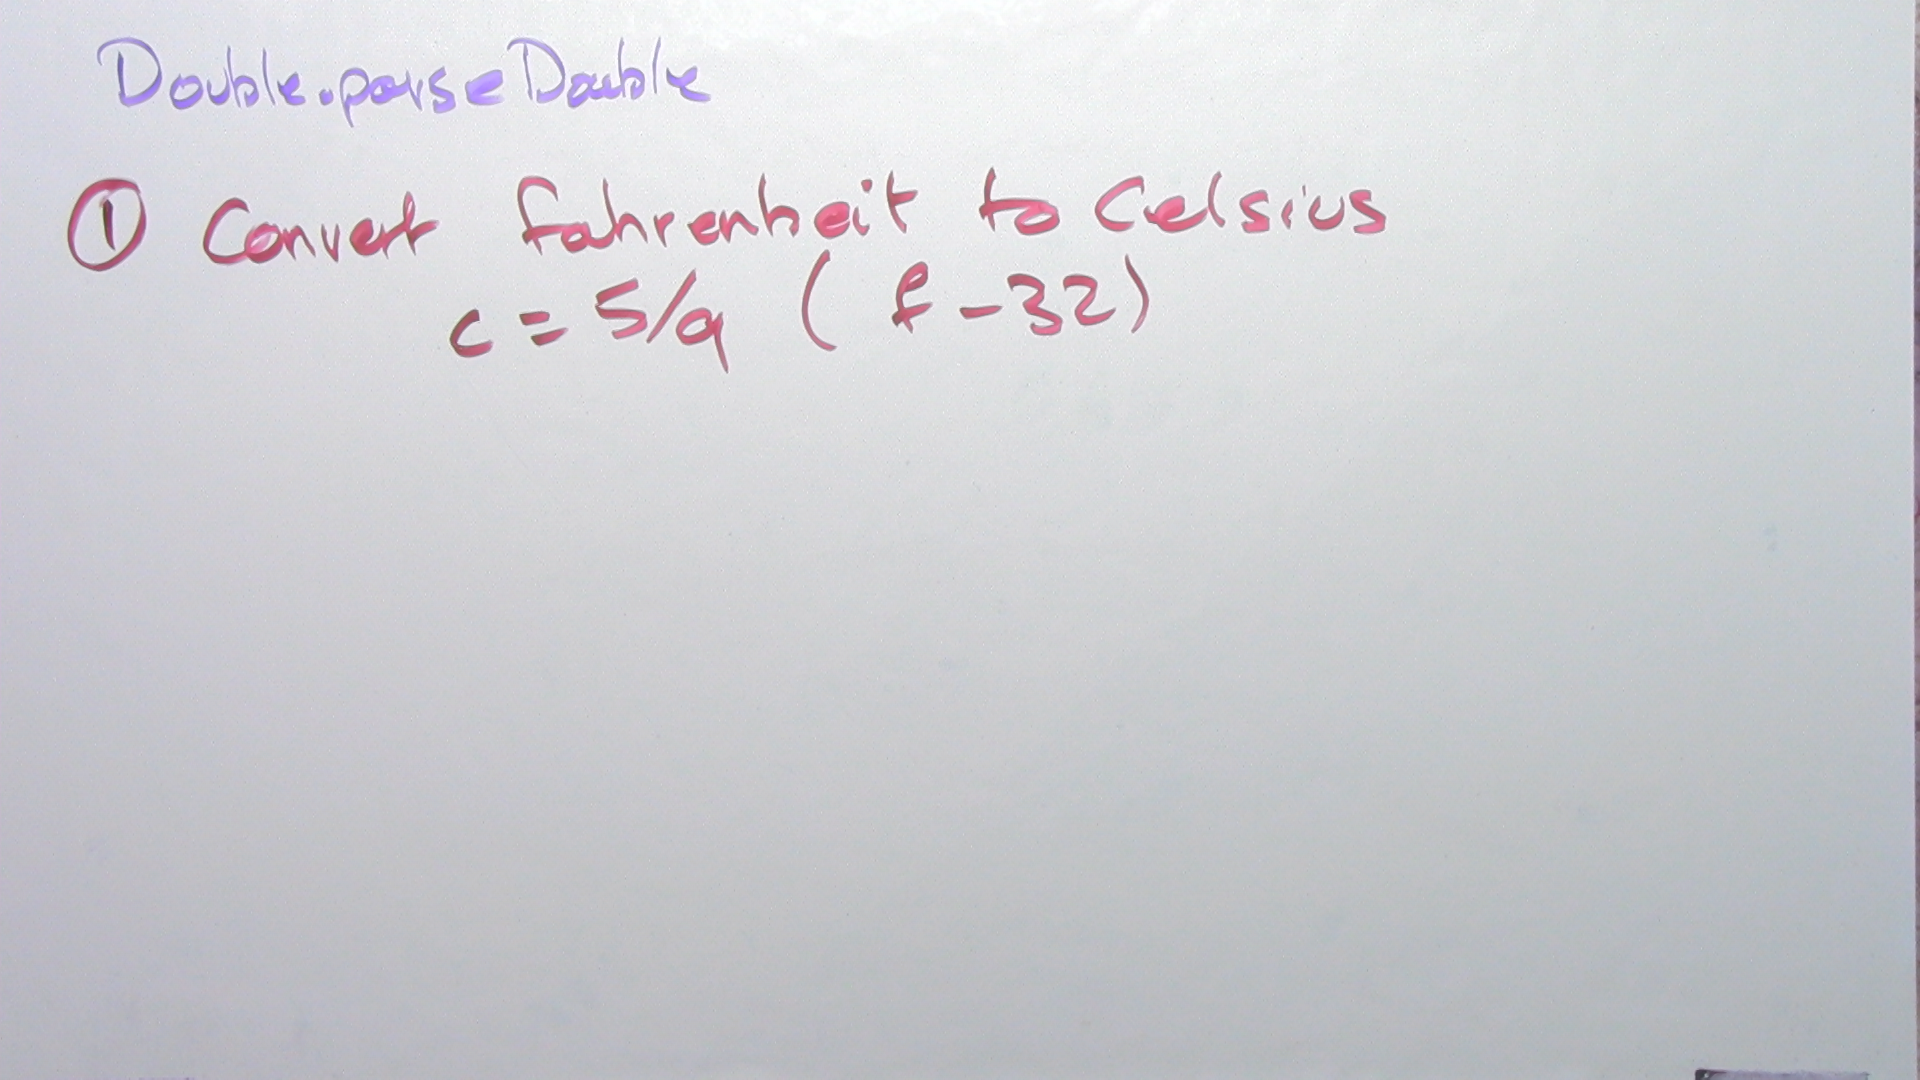 Double.parseDouble
① Convert fahrenheit to Celsius
c = 5/9 ( f - 32)